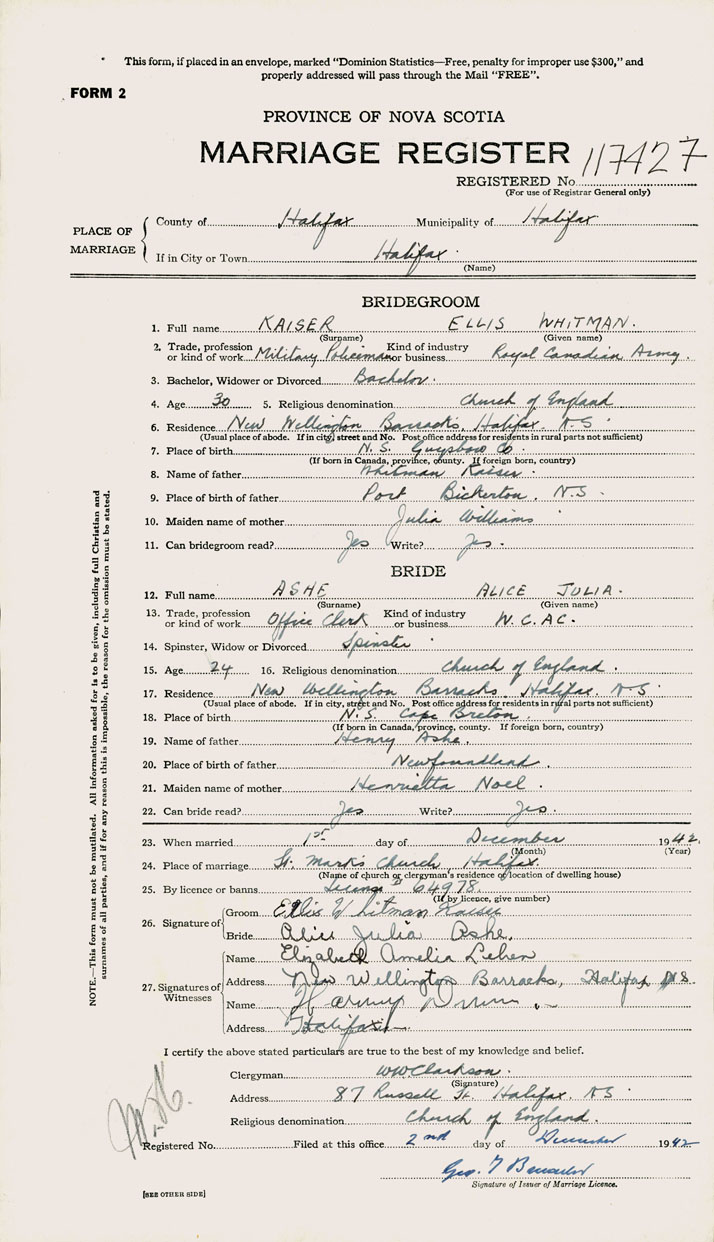 This form, if placed in an envelope, marked “Dominion Statistics—Free, penalty for improper use $300,” and
properly addressed will pass through the Mail “FREE”.
FORM 2
PROVINCE OF NOVA SCOTIA
MARRIAGE REGISTER
REGISTERED No. 117427
(For use of Registrar General only)
PLACE OF MARRIAGE
County of Halifax Municipality of Halifax
If in City or Town Halifax.
(Name)
BRIDEGROOM
1. Full name KAISER ELLIS WHITMAN.
(Surname) (Given name)
2. Trade, profession or kind of work Military Policeman Kind of industry or business Royal Canadian Army.
3. Bachelor, Widower or Divorced Bachelor.
4. Age 30 5. Religious denomination Church of England
6. Residence New Wellington Barracks, Halifax. N-S
(Usual place of abode. If in city, street and No. Post office address for residents in rural parts not sufficient)
7. Place of birth N.S. Guysboro Co.
(If born in Canada, province, county. If foreign born, country)
8. Name of father Whitman Kaiser
9. Place of birth of father Port Bickerton. N.S.
10. Maiden name of mother Julia Williams
11. Can bridegroom read? Yes Write? Yes.
BRIDE
12. Full name ASHE ALICE JULIA.
(Surname) (Given name)
13. Trade, profession or kind of work Office Clerk Kind of industry or business W.C.A.C.
14. Spinster, Widow or Divorced Spinster
15. Age 24 16. Religious denomination Church of England.
17. Residence New Wellington Barracks Halifax N-S
(Usual place of abode. If in city, street and No. Post office address for residents in rural parts not sufficient)
18. Place of birth N.S. Cape Breton.
(If born in Canada, province, county. If foreign born, country)
19. Name of father Henry Ashe.
20. Place of birth of father Newfoundland.
21. Maiden name of mother Henrietta Noel.
22. Can bride read? Yes Write? Yes.
23. When married 1st day of December 1942.
(Month) (Year)
24. Place of marriage St. Mark's Church Halifax.
(Name of church or clergyman's residence or location of dwelling house)
25. By licence or banns License 64978.
(If by licence, give number)
26. Signature of
Groom Ellis Whitman Kaiser
Bride Alice Julia Ashe.
27. Signatures of Witnesses
Name Elizabeth Amelia
Address New Wellington Barracks, Halifax N.S.
Name
Address Halifax
I certify the above stated particulars are true to the best of my knowledge and belief.
Clergyman WW Clarkson.
(Signature)
Address 87 Russell St. Halifax. NS
Religious denomination Church of England.
Registered No. Filed at this office 2nd day of December 1942
Geo.
Signature of Issuer of Marriage Licence.
[SEE OTHER SIDE]
NOTE.—This form must not be mutilated. All information asked for is to be given, including full Christian and
surnames of all parties, and if for any reason this is impossible, the reason for the omission must be stated.